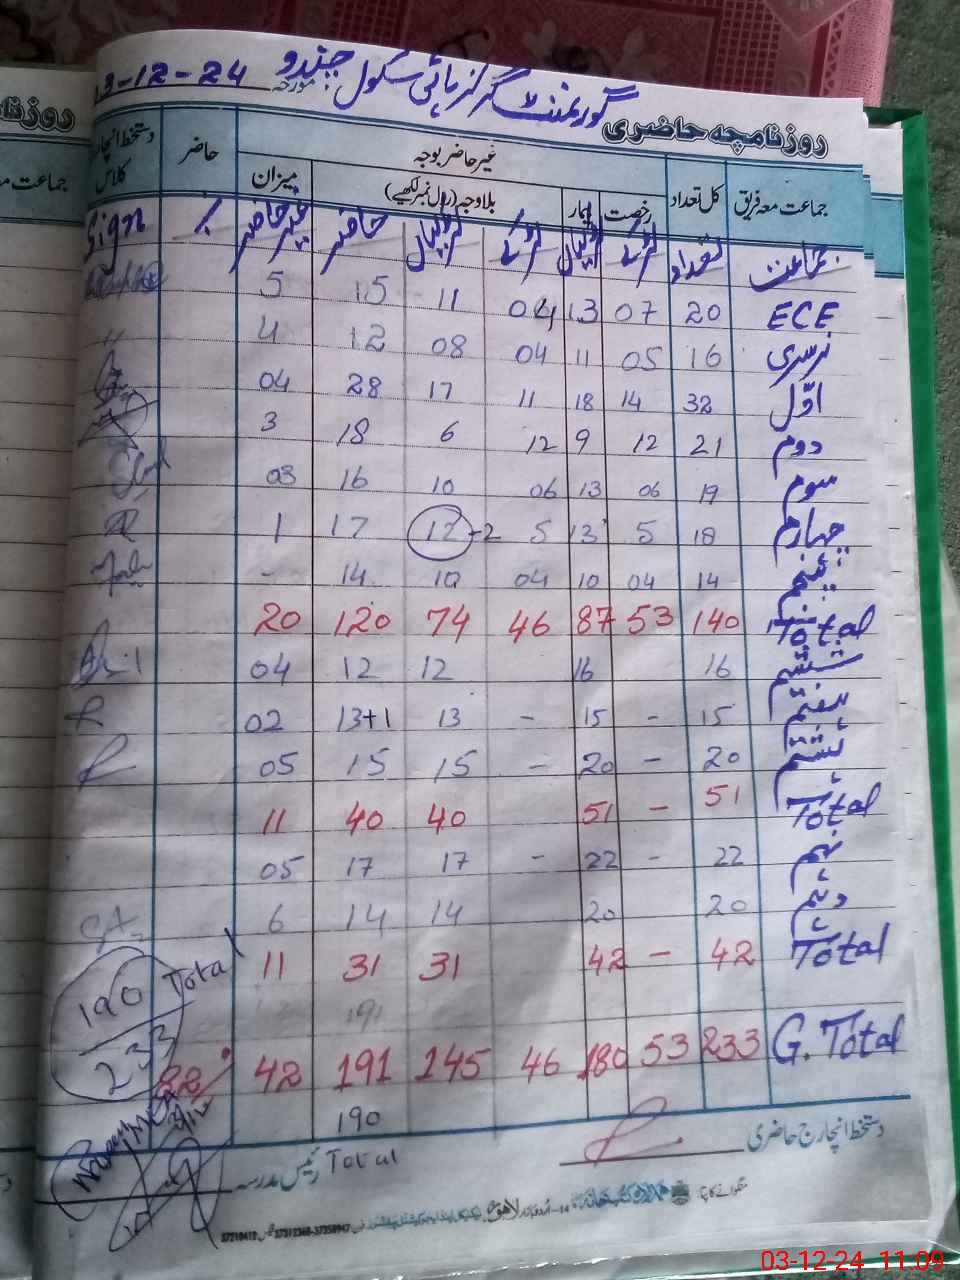 گورنمنٹ گرلز ہائی سکول جندو
روزنامچہ حاضری مورخہ 3-12-24
جماعت معہ فریق کل تعداد غیر حاضر بوجہ حاضر دستخط انچارج کلاس
رخصت بیمار بلاوجہ (رول نمبر لکھیے) میزان
جماعت تعداد لڑکے لڑکیاں لڑکے لڑکیاں حاضر غیر حاضر % Sign
ECE 20 07 13 04 11 15 5
نرسری 16 05 11 04 08 12 4 "
اوّل 32 14 18 11 17 28 04
دوم 21 12 9 12 6 18 3
سوم 19 06 13 06 10 16 03
چہارم 18 5 13 5 12-2 17 1
پنجم 14 04 10 04 10 14 -
Total 140 53 87 46 74 120 20
ششم 16 16 12 12 04
ہفتم 15 - 15 - 13 13+1 02
ہشتم 20 - 20 - 15 15 05
Total 51 - 51 40 40 11
نہم 22 - 22 - 17 17 05
دہم 20 20 14 14 6
Total 42 - 42 31 31 11
Total 190
191
233
G. Total 233 53 180 46 145 191 42 22%
190
دستخط انچارج حاضری Total رئیس مدرسہ
منگوانے کا پتہ:
اردو بازار لاہور
37210412 37312368-37358947
روزنا
جماعت م
03-12-24 11:09